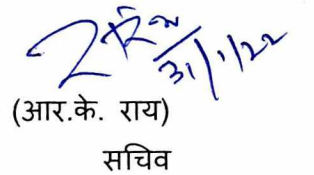 31/1/22
(आर.के. राय)
सचिव